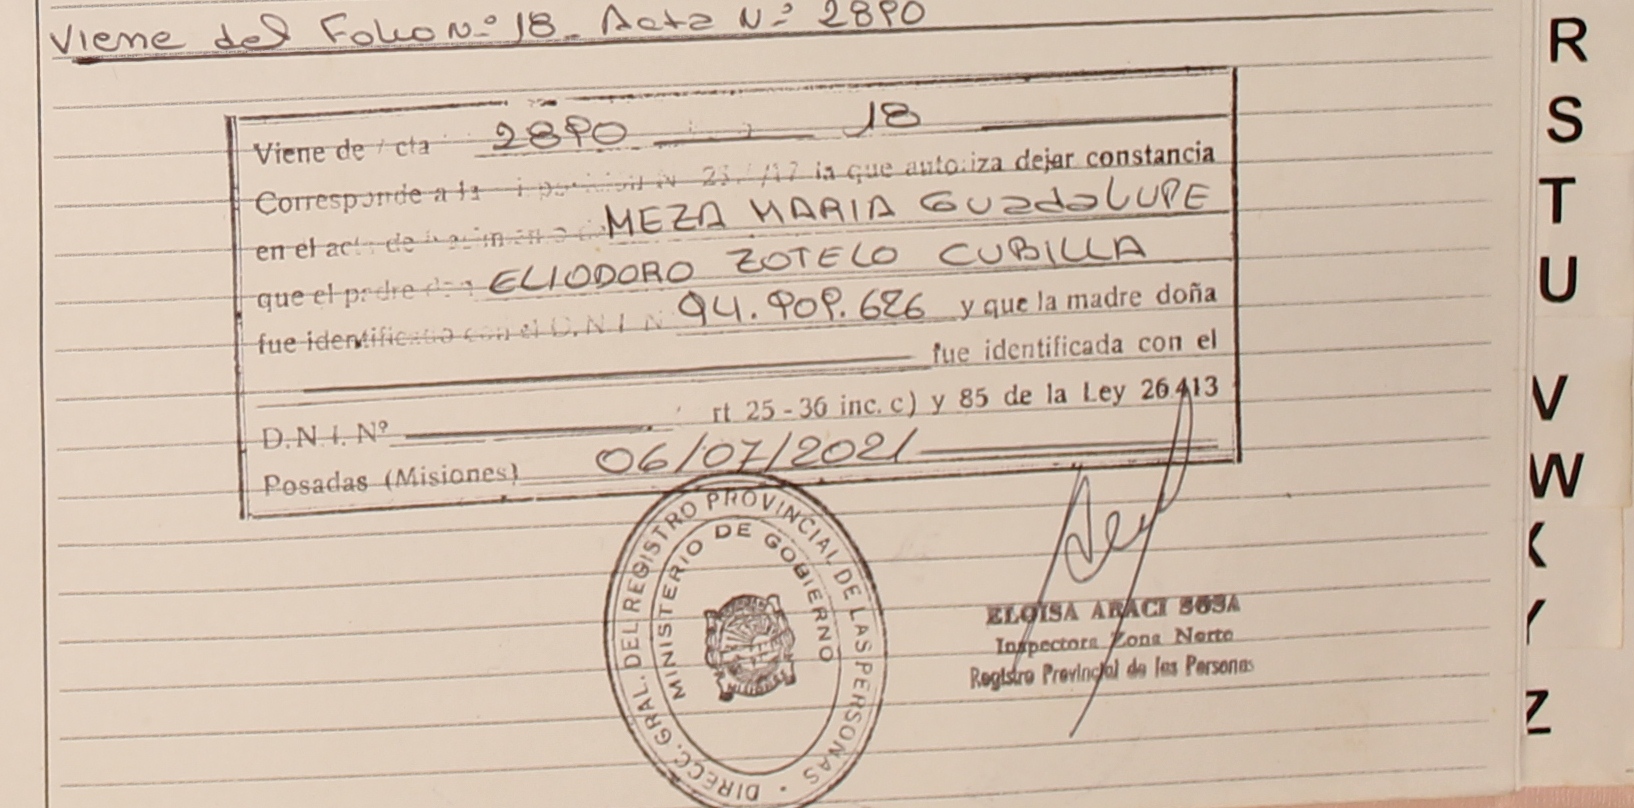 Viene del Folio Nº 18. Acta Nº 2890
Viene de cta 2890 18
Corresponde a la la que autoriza dejar constancia
en el acta de MEZA MARIA GUadaLUPE
que el padre don ELIODORO ZOTELO CUBILLA
fue identificado con el D.N.I. Nº 94.909.626 y que la madre doña
fue identificada con el
D.N.I. Nº rt 25-36 inc. c) y 85 de la Ley 26413
Posadas (Misiones) 06/07/2021
DIRECC. GRAL. DEL REGISTRO PROVINCIAL DE LAS PERSONAS
MINISTERIO DE GOBIERNO
ELOISA ARACI SOSA
Inspectora Zona Norte
Registro Provincial de las Personas
R
S
T
U
V
W
X
Y
Z